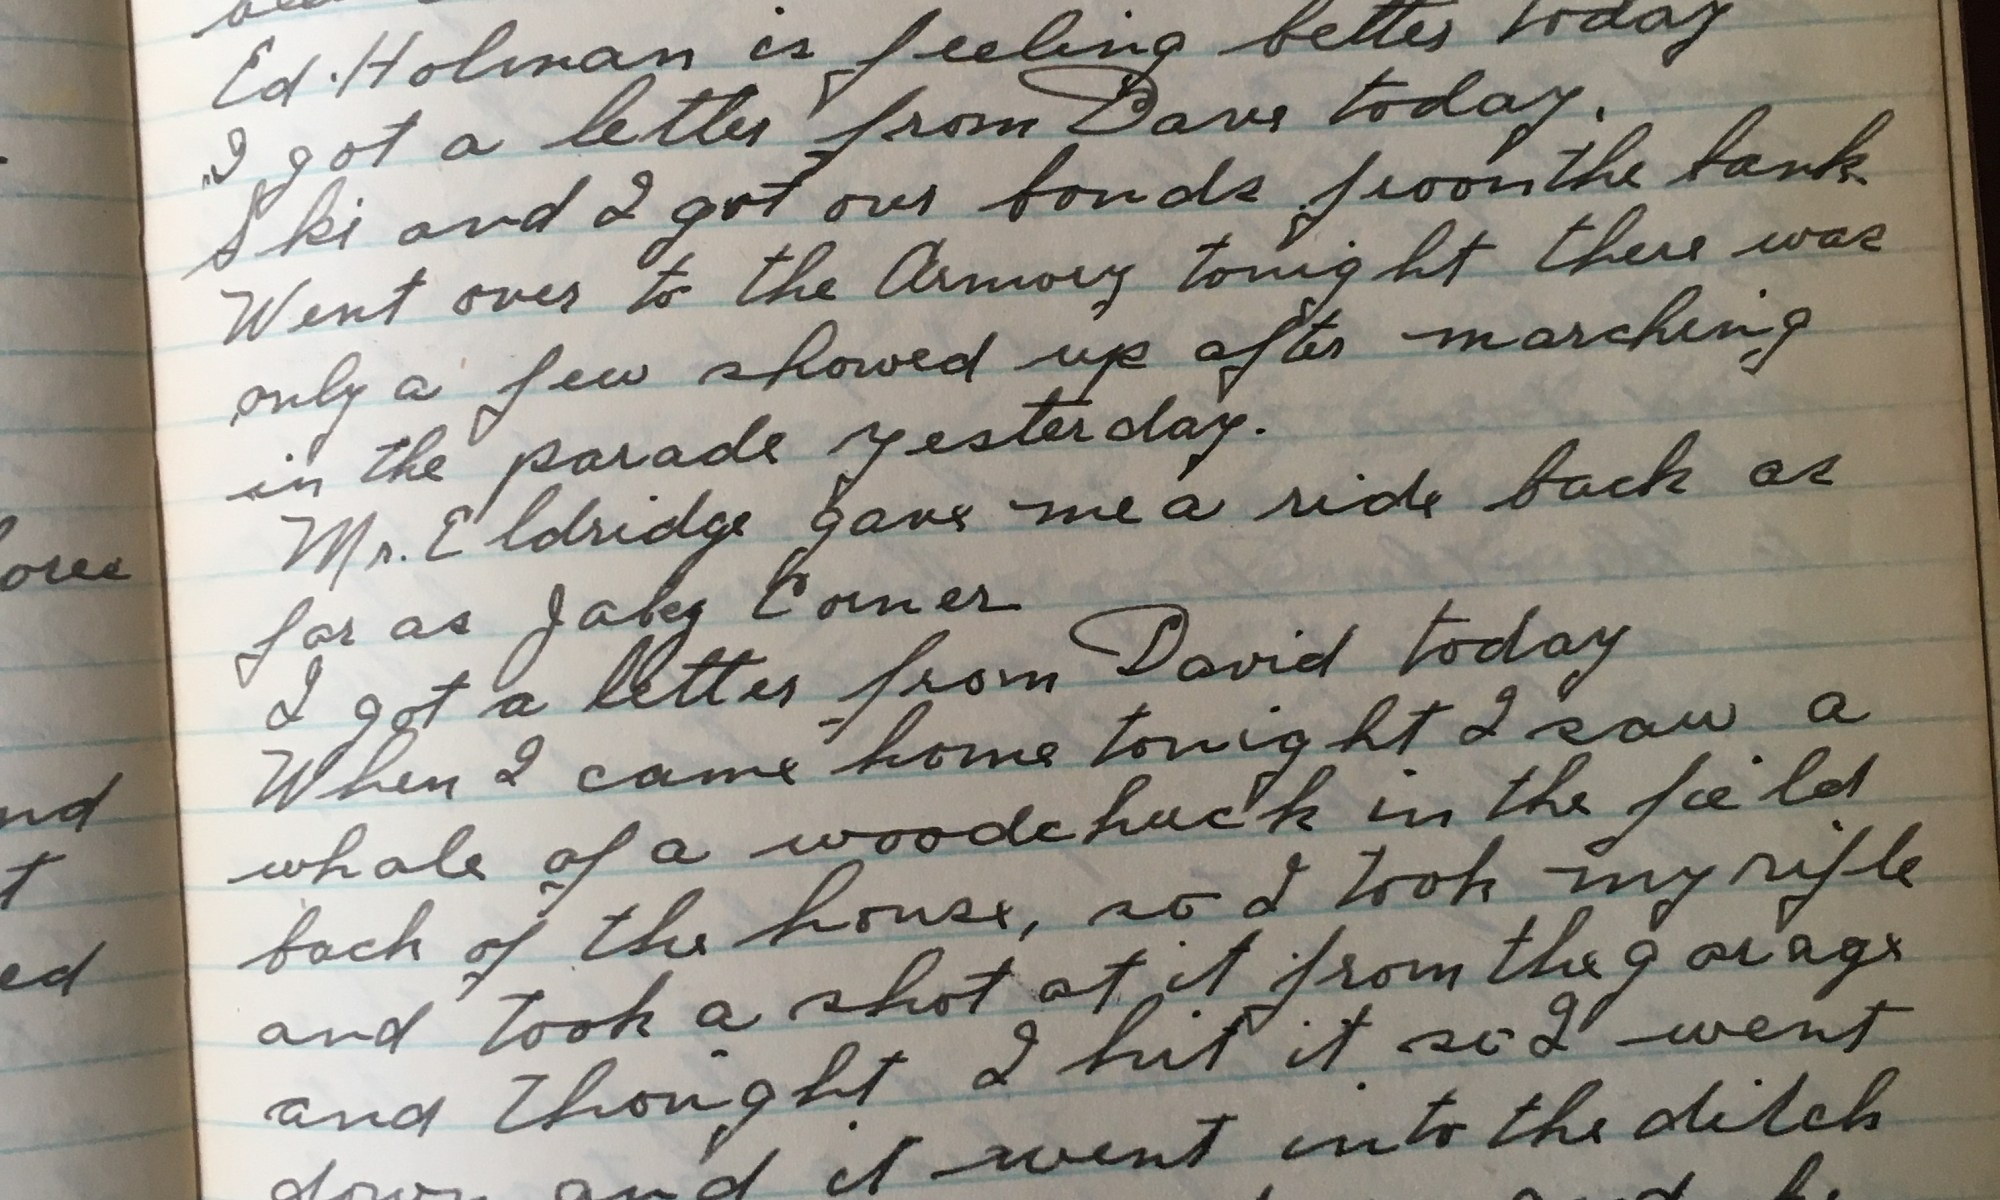 Ed. Holman is feeling better today
I got a letter from Dave today.
Ski and I got our bonds from the bank
Went over to the Armory tonight there was
only a few showed up after marching
in the parade yesterday.
Mr. Eldridge gave me a ride back as
far as Corner
I got a letter from David today
When I came home tonight I saw a
whale of a woodchuck in the field
back of the house, so I took my rifle
and took a shot at it from the garage
and thought I hit it so I went
down and it went into the ditch
nd
t
ed